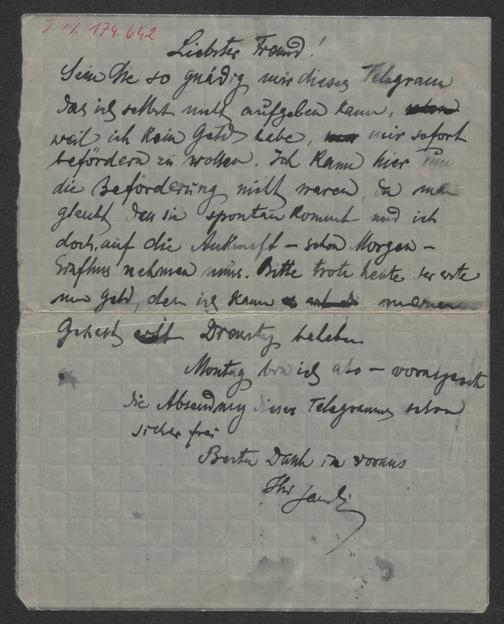 I. N. 174.642
Liebster Freund!
Sein Sie so gnädig mir dieses Telegram
das ich selbst nicht aufgeben kann,
weil ich kein Geld habe, mir sofort
befördern zu wollen. Ich kann hier
die Beforderung nicht waren, da man
glaubt dass sie spontan kommt und ich
doch auf die Ankunft – schon Morgen –
Einfluss nehmen muss. Bitte trotz heute
nun Geld, den ich kann meinen
erst Dienstag beheben
Montag bin ich also – vorausgesetzt
die Absendung dieses Telegrammes schon
sicher frei
Besten Dank im voraus
Ihr